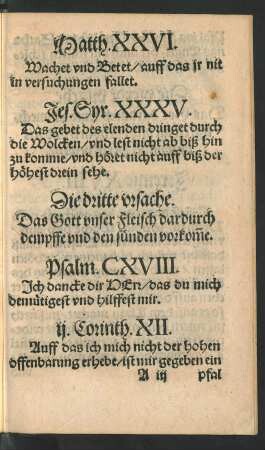 Matth. XXVI.
Wachet vnd Betet/ auff das jr nit
in versuchungen fallet.
Jes. Syr. XXXV.
Das gebet des elenden dringet durch
die Wolcken/ vnd lest nicht ab biß hin
zu komme/ vnd höret nicht auff biß der
höhest drein sehe.
Die dritte vrsache.
Das Gott vnser Fleisch dardurch
dempffe vnd den sünden vorkom̃e.
Psalm. CXVIII.
Ich dancke dir HErr/ das du mich
demütigest vnd hilffest mir.
ij. Corinth. XII.
Auff das ich mich nicht der hohen
offenbarung erhebe/ ist mir gegeben ein
A iij pfal